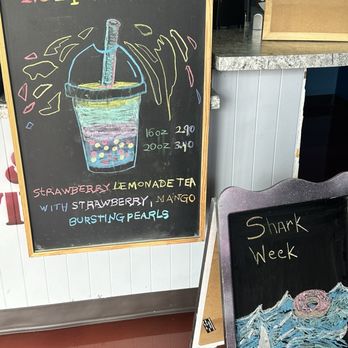 16oz 2.90
20oz 3.40
STRAWBERRY LEMONADE TEA
WITH STRAWBERRY, MANGO
BURSTING PEARLS
Shark
Week